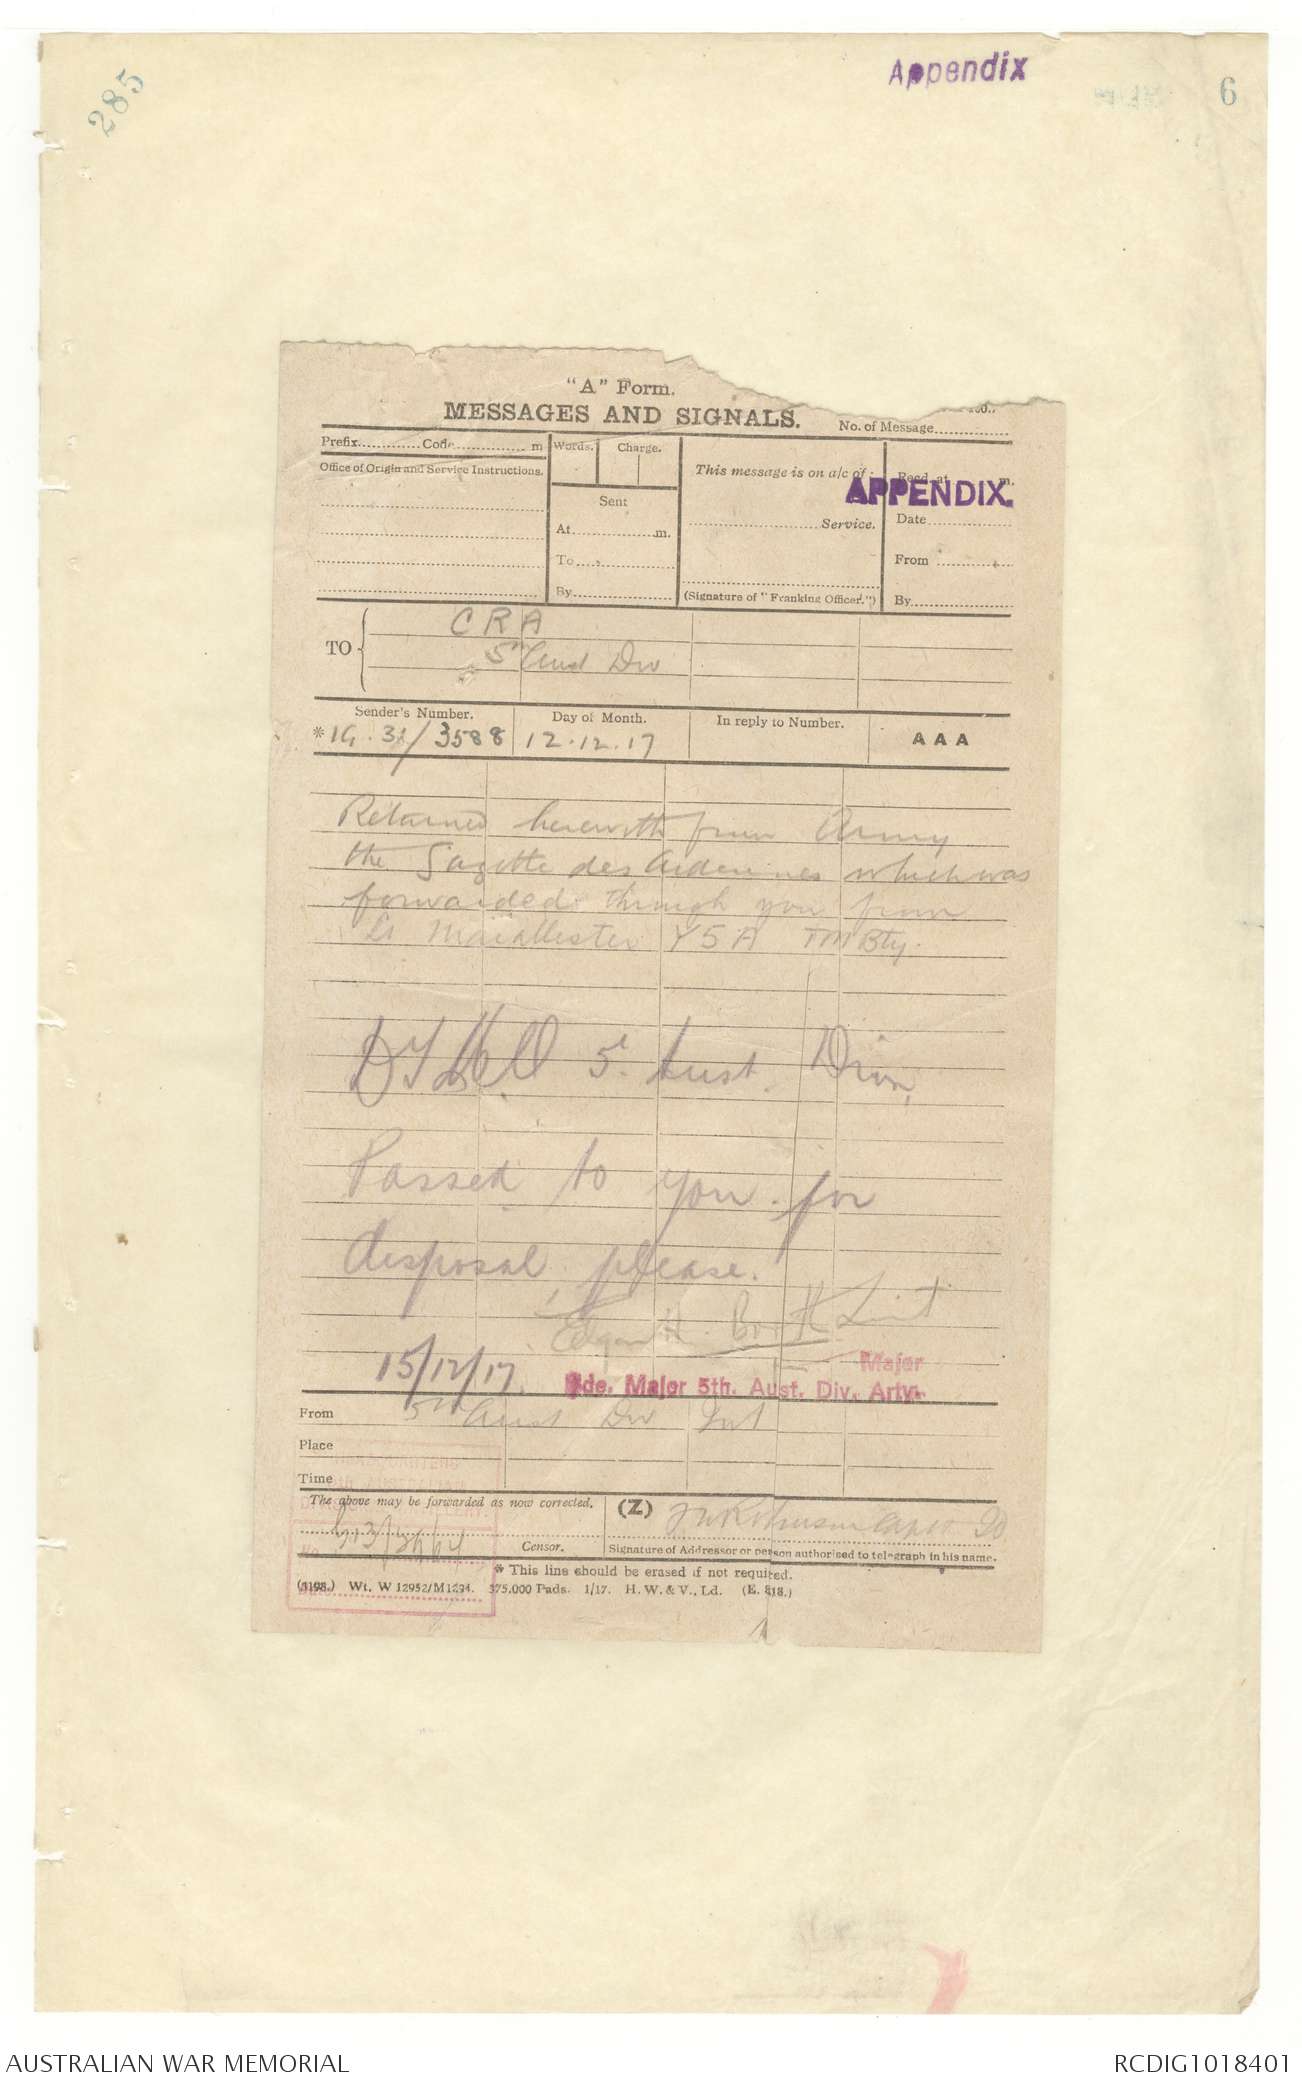 285
Appendix
6
"A" Form.
MESSAGES AND SIGNALS.
No. of Message
Prefix Code m
Words. Charge.
This message is on a/c of:
Recd. at m.
APPENDIX.
Office of Origin and Service Instructions.
Sent
At m.
To
By
Service.
(Signature of "Franking Officer.")
Date
From
By
TO
CRA
5th Aust Div
Sender's Number.
Day of Month.
In reply to Number.
AAA
*IG. 31/3588
12.12.17
Returned herewith from Army
the Gazette des Ardennes which was
forwarded through you from
Lt Macallester Y5A TM Bty.
5th Aust. Divn,
Passed to you for
disposal please.
Edgar H. Booth Lieut
15/12/17.
Major
Bde. Major 5th. Aust. Div. Arty.
From
5th Aust Div Int
Place
Time
HEADQUARTERS
The above may be forwarded as now corrected.
(Z)
Robinson Capt
No.
Censor.
Signature of Addressor or person authorised to telegraph in his name.
* This line should be erased if not required.
(3198.) Wt. W 12952/M1294. 375,000 Pads. 1/17. H. W. & V., Ld. (E. 818.)
AUSTRALIAN WAR MEMORIAL
RCDIG1018401